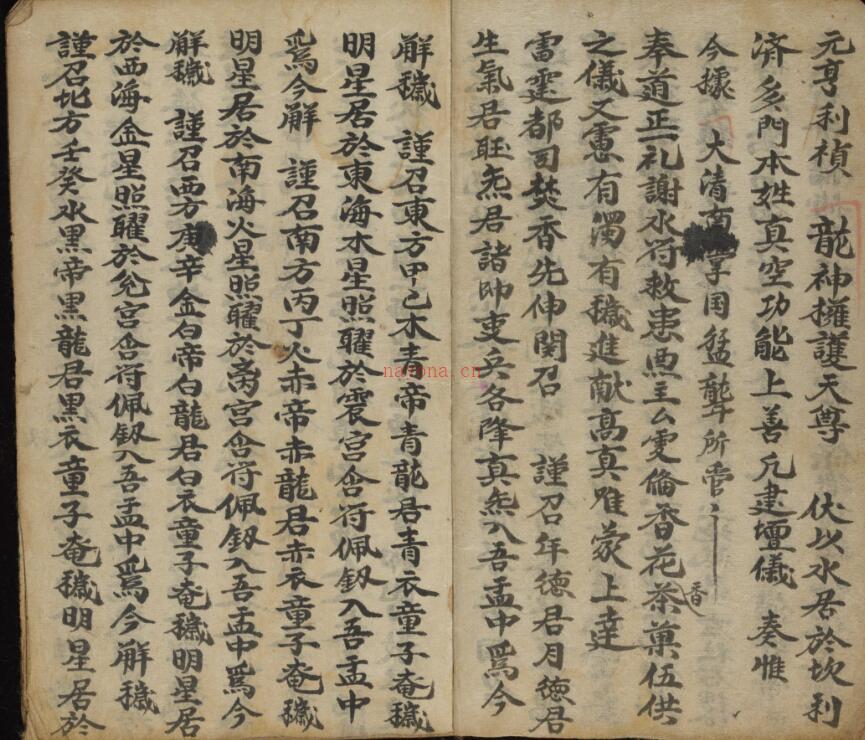 元亨利禎　龍神擁護天尊　伏以水居於坎利
済多門本姓真空功能上善凢建壇儀　奏惟
今據　大清啇掌国猛聾所管
奉道正一礼謝水符救患　主公雯倫香花茶菓伍供
香
之儀又慮有濁有穢進献高真唯蒙上達
雷霆都司焚香先伸関召　謹召年徳君月徳君
生氣君旺炁君諸帥吏兵各降真炁入吾盂中爲今
觧穢　謹召東方甲乙木青帝青龍君青衣童子奄穢
明星居於東海木星照耀於震宮含符佩釼入吾盂中
爲今觧　謹召南方丙丁火赤帝赤龍君赤衣童子奄穢
明星居於南海火星照耀於离宮含符佩釼入吾盂中爲今
觧穢　謹召西方庚辛金白帝白龍君白衣童子奄穢明星居
於西海金星照耀於兊宮含符佩釼入吾盂中爲今觧穢
謹召北方壬癸水黒帝黒龍君黒衣童子奄穢明星居於
nayona.cn